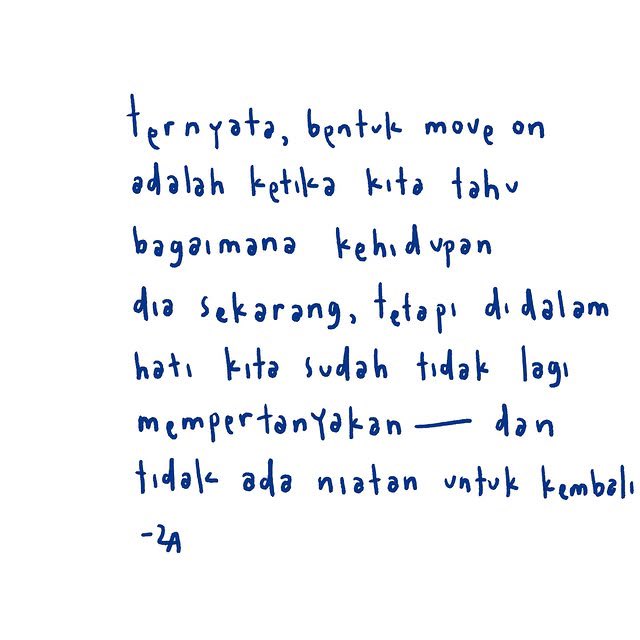 ternyata, bentuk move on
adalah ketika kita tahu
bagaimana kehidupan
dia sekarang, tetapi didalam
hati kita sudah tidak lagi
mempertanyakan — dan
tidak ada niatan untuk kembali
-2A